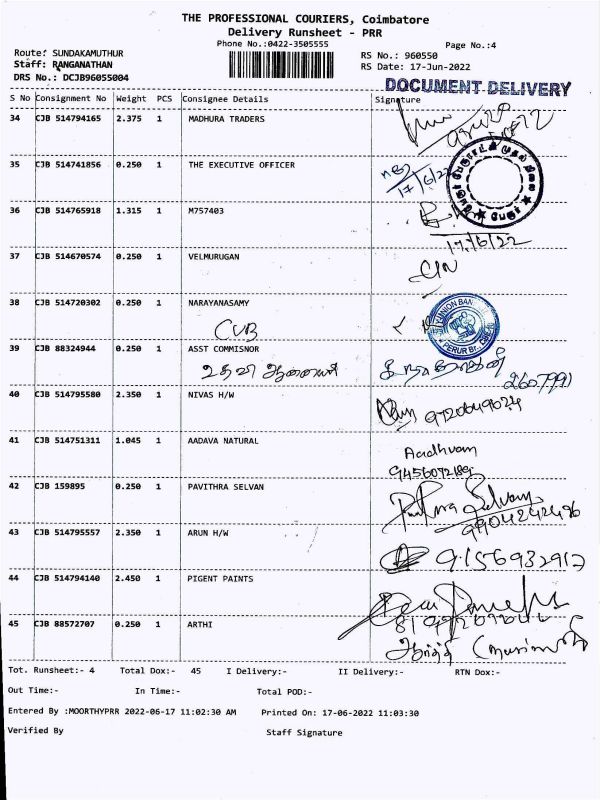 THE PROFESSIONAL COURIERS, Coimbatore
Delivery Runsheet - PRR
Phone No.:0422-3505555
Page No.:4
Route: SUNDAKAMUTHUR
RS No.: 960550
Staff: RANGANATHAN
RS Date: 17-Jun-2022
DRS No.: DCJB96055004
DOCUMENT DELIVERY
S No Consignment No Weight PCS Consignee Details Signature
34 CJB 514794165 2.375 1 MADHURA TRADERS
35 CJB 514741856 0.250 1 THE EXECUTIVE OFFICER
17/6/22
36 CJB 514765918 1.315 1 M757403
17/6/22
37 CJB 514670574 0.250 1 VELMURUGAN
38 CJB 514720302 0.250 1 NARAYANASAMY
CUB
UNION BAN
PERUR
39 CJB 88324944 0.250 1 ASST COMMISNOR
உதவி ஆணையர்
2607991
40 CJB 514795580 2.350 1 NIVAS H/W
41 CJB 514751311 1.045 1 AADAVA NATURAL
Aadhvam
9456072189
42 CJB 159895 0.250 1 PAVITHRA SELVAN
9904242496
43 CJB 514795557 2.350 1 ARUN H/W
9156932912
44 CJB 514794140 2.450 1 PIGENT PAINTS
45 CJB 88572707 0.250 1 ARTHI
Tot. Runsheet:- 4 Total Dox:- 45 I Delivery:- II Delivery:- RTN Dox:-
Out Time:- In Time:- Total POD:-
Entered By :MOORTHYPRR 2022-06-17 11:02:30 AM Printed On: 17-06-2022 11:03:30
Verified By Staff Signature